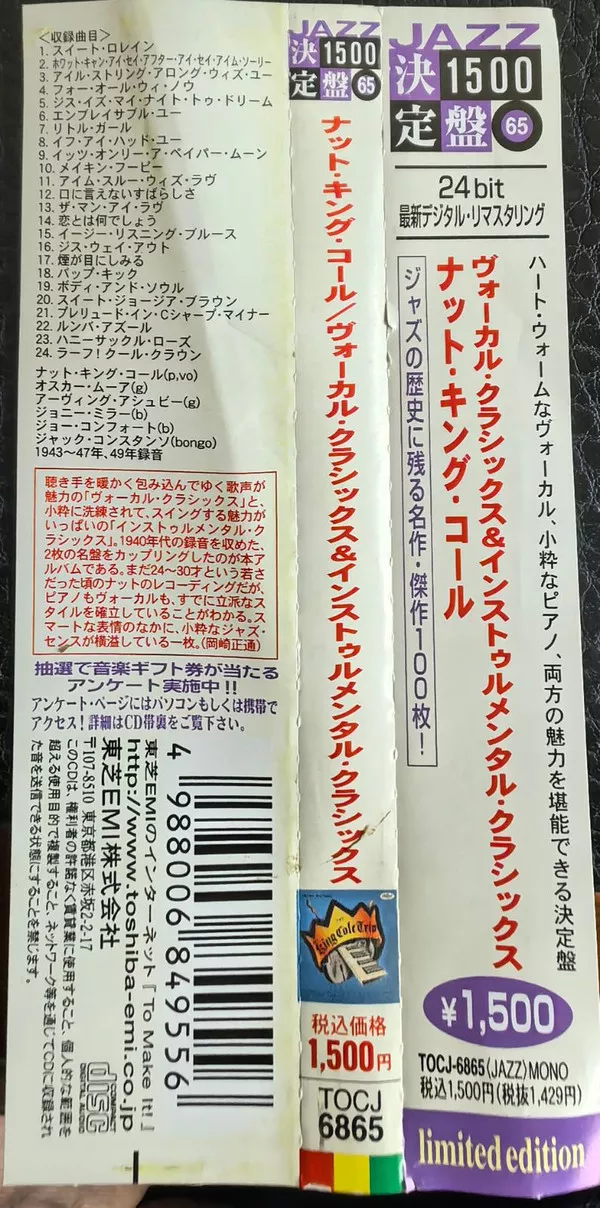 <収録曲目>
1. スイート・ロレイン
2. ホワット・キャン・アイ・セイ・アフター・アイ・セイ・アイム・ソーリー
3. アイル・ストリング・アロング・ウィズ・ユー
4. フォー・オール・ウィ・ノウ
5. ジス・イズ・マイ・ナイト・トゥ・ドリーム
6. エンブレイサブル・ユー
7. リトル・ガール
8. イフ・アイ・ハッド・ユー
9. イッツ・オンリー・ア・ペイパー・ムーン
10. メイキン・フーピー
11. アイム・スルー・ウィズ・ラヴ
12. 口に言えないすばらしさ
13. ザ・マン・アイ・ラヴ
14. 恋とは何でしょう
15. イージー・リスニング・ブルース
16. ジス・ウェイ・アウト
17. 煙が目にしみる
18. バップ・キック
19. ボディ・アンド・ソウル
20. スイート・ジョージア・ブラウン
21. プレリュード・イン・Cシャープ・マイナー
22. ルンバ・アズール
23. ハニーサックル・ローズ
24. ラーフ!クール・クラウン
ナット・キング・コール(p,vo)
オスカー・ムーア(g)
アーヴィング・アシュビー(g)
ジョニー・ミラー(b)
ジョー・コンフォート(b)
ジャック・コンスタンソ(bongo)
1943〜47年、49年録音
聴き手を暖かく包み込んでゆく歌声が
魅力の「ヴォーカル・クラシックス」と、
小粋に洗練されて、スイングする魅力が
いっぱいの「インストゥルメンタル・ク
ラシックス」。1940年代の録音を収めた、
2枚の名盤をカップリングしたのが本ア
ルバムである。まだ24〜30才という若さ
だった頃のナットのレコーディングだが、
ピアノもヴォーカルも、すでに立派なス
タイルを確立していることがわかる。ス
マートな表情のなかに、小粋なジャズ・
センスが横溢している一枚。(岡崎正通)
抽選で音楽ギフト券が当たる
アンケート実施中!!
アンケート・ページにはパソコンもしくは携帯で
アクセス!詳細はCD帯裏をご覧下さい。
4 988006 849556
東芝EMIのインターネット『To Make It!』
http://www.toshiba-emi.co.jp
東芝EMI株式会社
〒107-8510 東京都港区赤坂2-2-17
このCDは、権利者の許諾なく賃貸業に使用すること、個人的な範囲を
超える使用目的で複製すること、ネットワーク等を通じてCDに収録され
た音を送信できる状態にすることを禁じます。
COMPACT
disc
DIGITAL AUDIO
JAZZ
決定盤
1500
65
ナット・キング・コール/ヴォーカル・クラシックス&インストゥルメンタル・クラシックス
King Cole Trio
税込価格
1,500円
TOCJ
6865
JAZZ
決定盤
1500
65
24bit
最新デジタル・リマスタリング
ハート・ウォームなヴォーカル、小粋なピアノ、両方の魅力を堪能できる決定盤
ヴォーカル・クラシックス&インストゥルメンタル・クラシックス
ナット・キング・コール
ジャズの歴史に残る名作・傑作100枚!
¥1,500
TOCJ-6865(JAZZ)MONO
税込1,500円(税抜1,429円)
limited edition